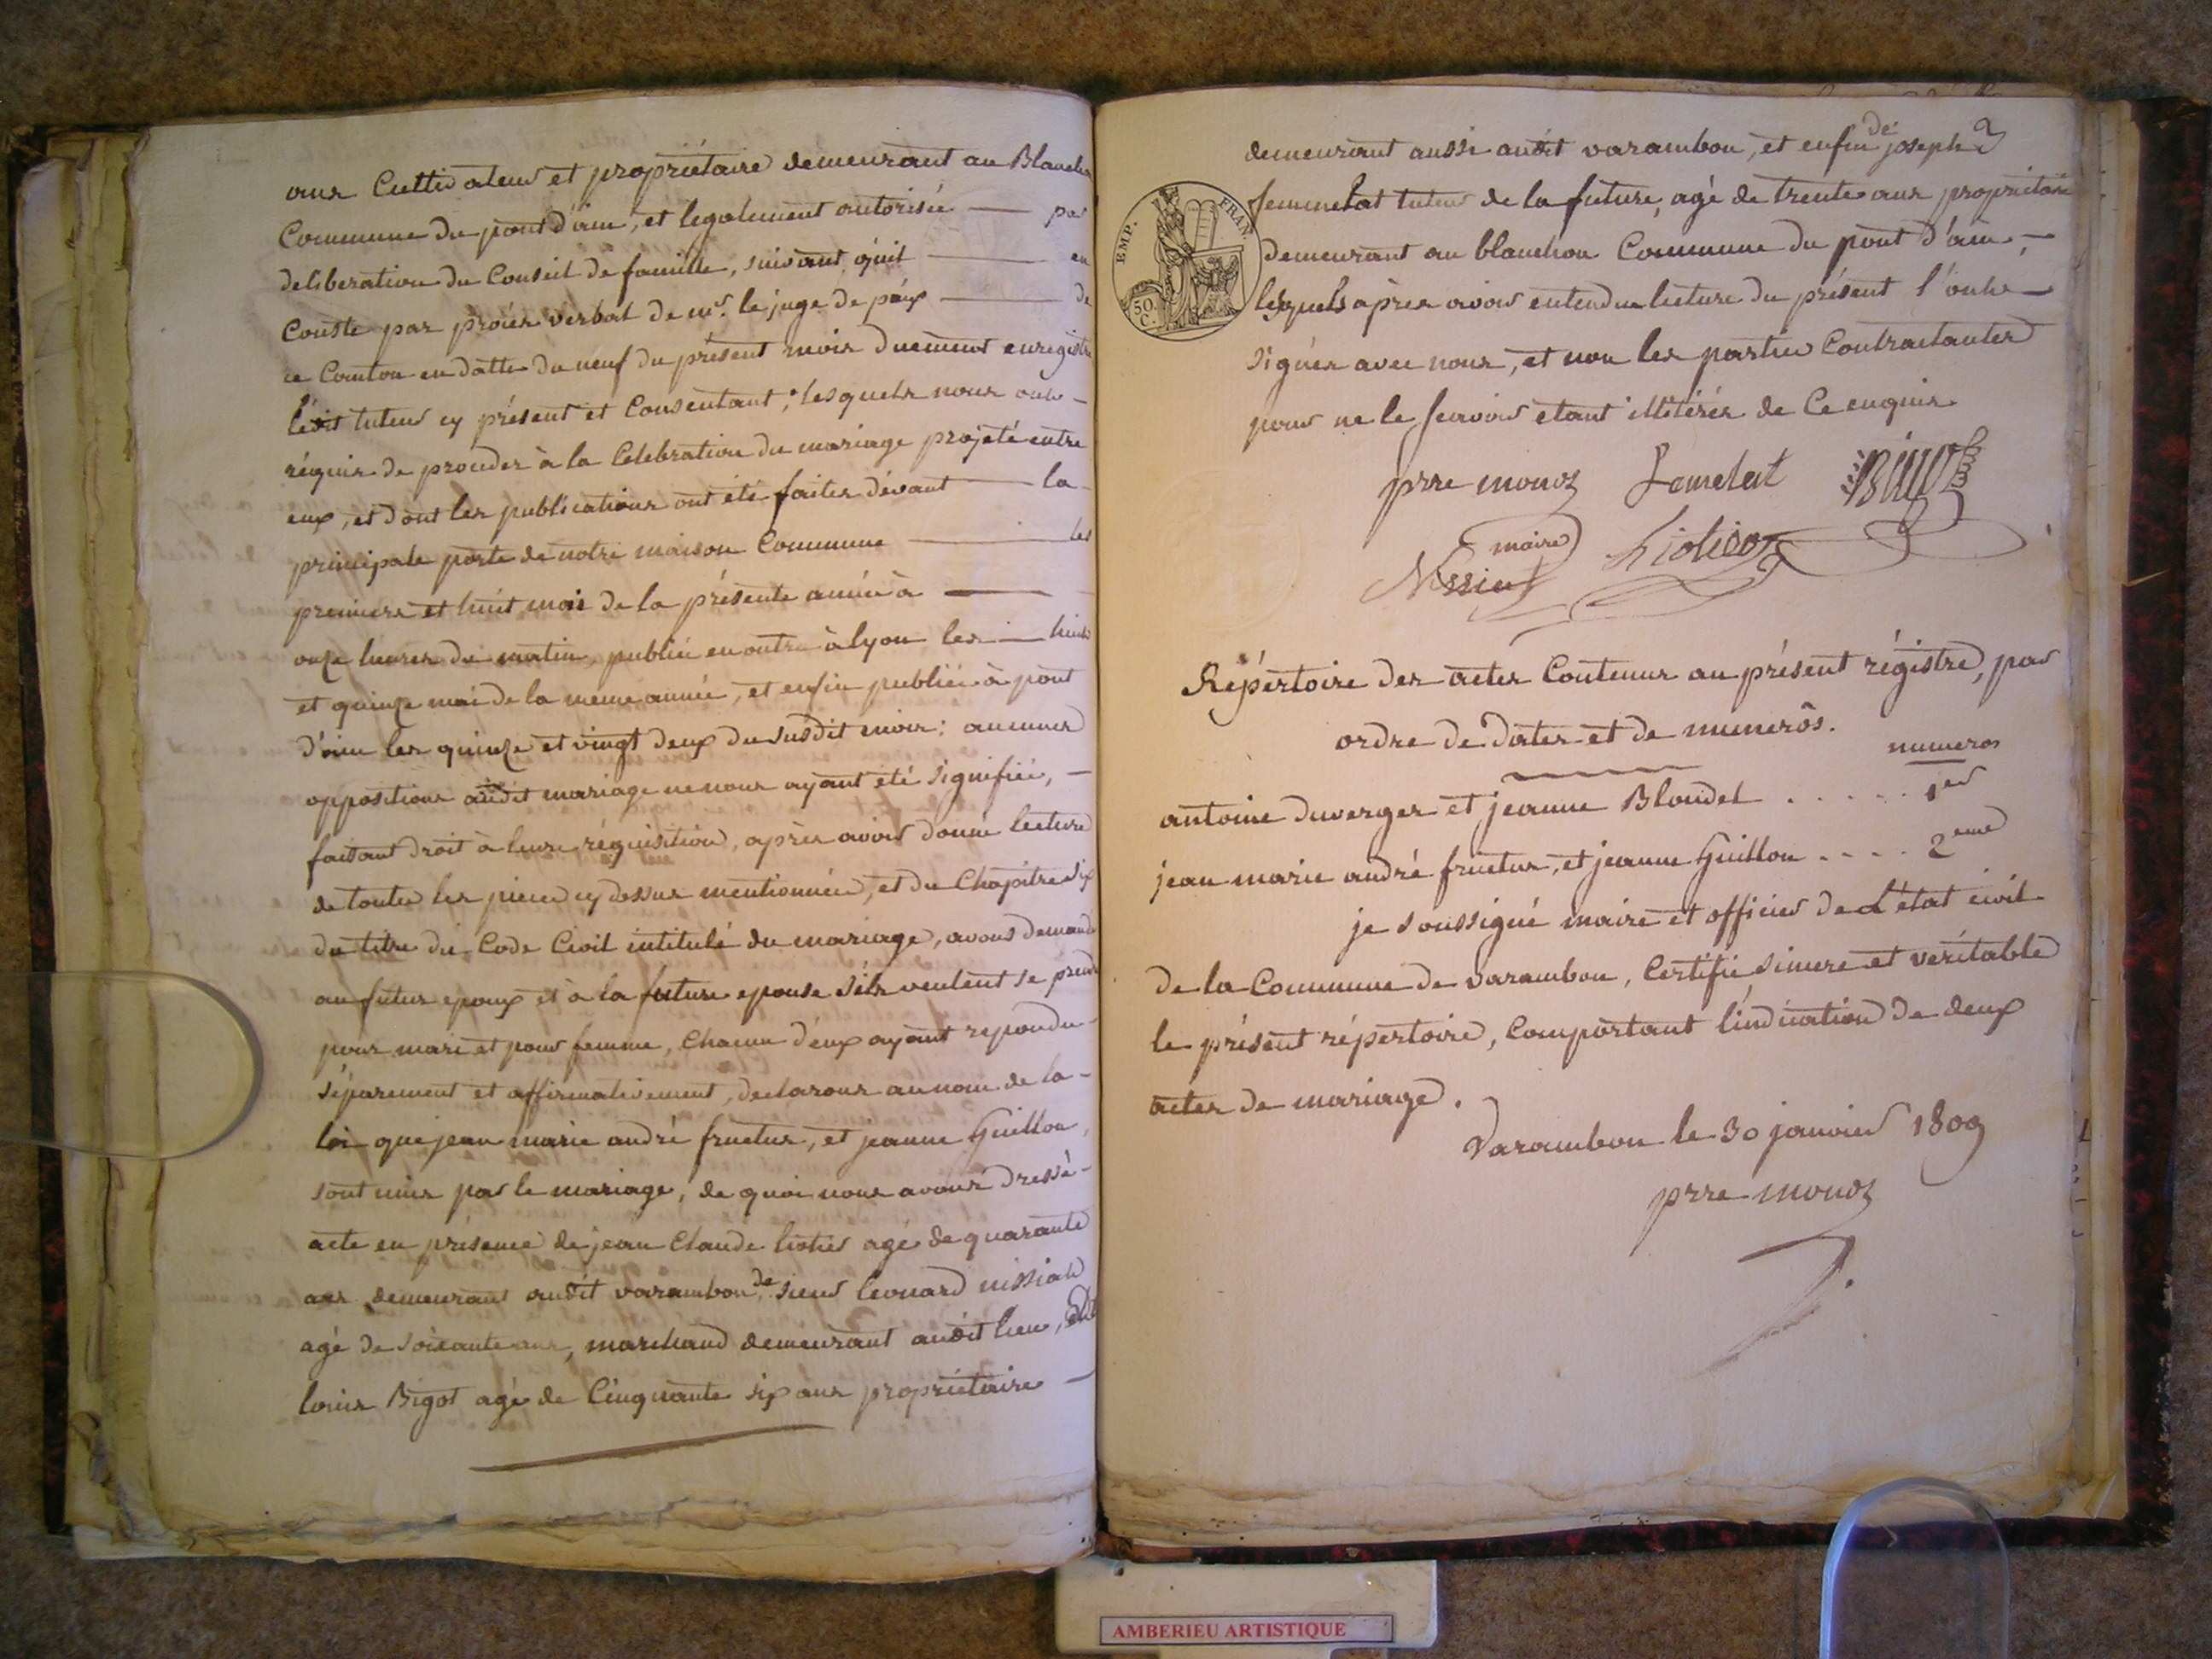 ans Cultivateur et propriétaire demeurant au Blanchon
Commune du pont d'ain, et legalement autorisée — par
deliberation du Conseil de famille, suivant qu'il — en
Conste par procès verbal de mr. le juge de paix — de
ce Canton en datte du neuf du présent mois duement enregistré
ledit tuteur cy présent et Consentant; lesquels nous ont —
réquis de proceder à la Célébration du mariage projeté entre
eux, et dont les publications ont été faites dévant — la
principale porte de notre maison Commune — les
premiers et huit mai de la présente année à —
onze heures du matin, publié en outre à lyon les — huit
et quinze mai de la meme année, et enfin publié à pont
d'ain les quinze et vingt deux du susdit mois; aucunes
oppositions audit mariage ne nous ayant été signifiée, —
faisant droit à leur réquisition, après avoir donné lecture
de toutes les pieces cy dessus mentionnées, et du Chapitre six
du titre du Code Civil intitulé du mariage, avons demandé
au futur epoux et à la future epouse s'ils veulent se prendre
pour mari et pour femme, Chacun d'eux ayant repondu
séparement et affirmativement, declarons au nom de la -
loi que jean marie andré fructus, et jeanne Guillon,
sont unis par le mariage, de quoi nous avons dressé -
acte en présence de jean Claude agé de quarante
ans demeurant audit varambon, de sieur leonard missiat
agé de soixante ans, marchand demeurant audit lieu,
louis Bigot agé de Cinquante six ans propriétaire —
demeurant aussi audit varambon, et enfin de joseph
femmelat tuteur de la future, agé de trente ans propriétaire
EMP. FRAN
50 C.
demeurant au blanchon Commune du pont d'ain, —
lesquels après avoir entendu lecture du présent l'ont —
signés avec nous, et non les parties Contractantes
pour ne le scavoir étant illitérés de Ce enquis
prre monoz femelat
maire
Répertoire des actes Contenus au présent régistre, par
ordre de dates et de numerôs.
numeros
antoine duverger et jeanne Blondel . . . . . 1er
jean marie andré fructus, et jeanne Guillon . . . . 2eme
je soussigné maire et officier de L'état civil
de la Commune de varambon, Certifie sincere et véritable
le présent répertoire, Comportant l'indication de deux
actes de mariage.
Varambon le 30 janvier 1809
prre monoz
AMBERIEU ARTISTIQUE